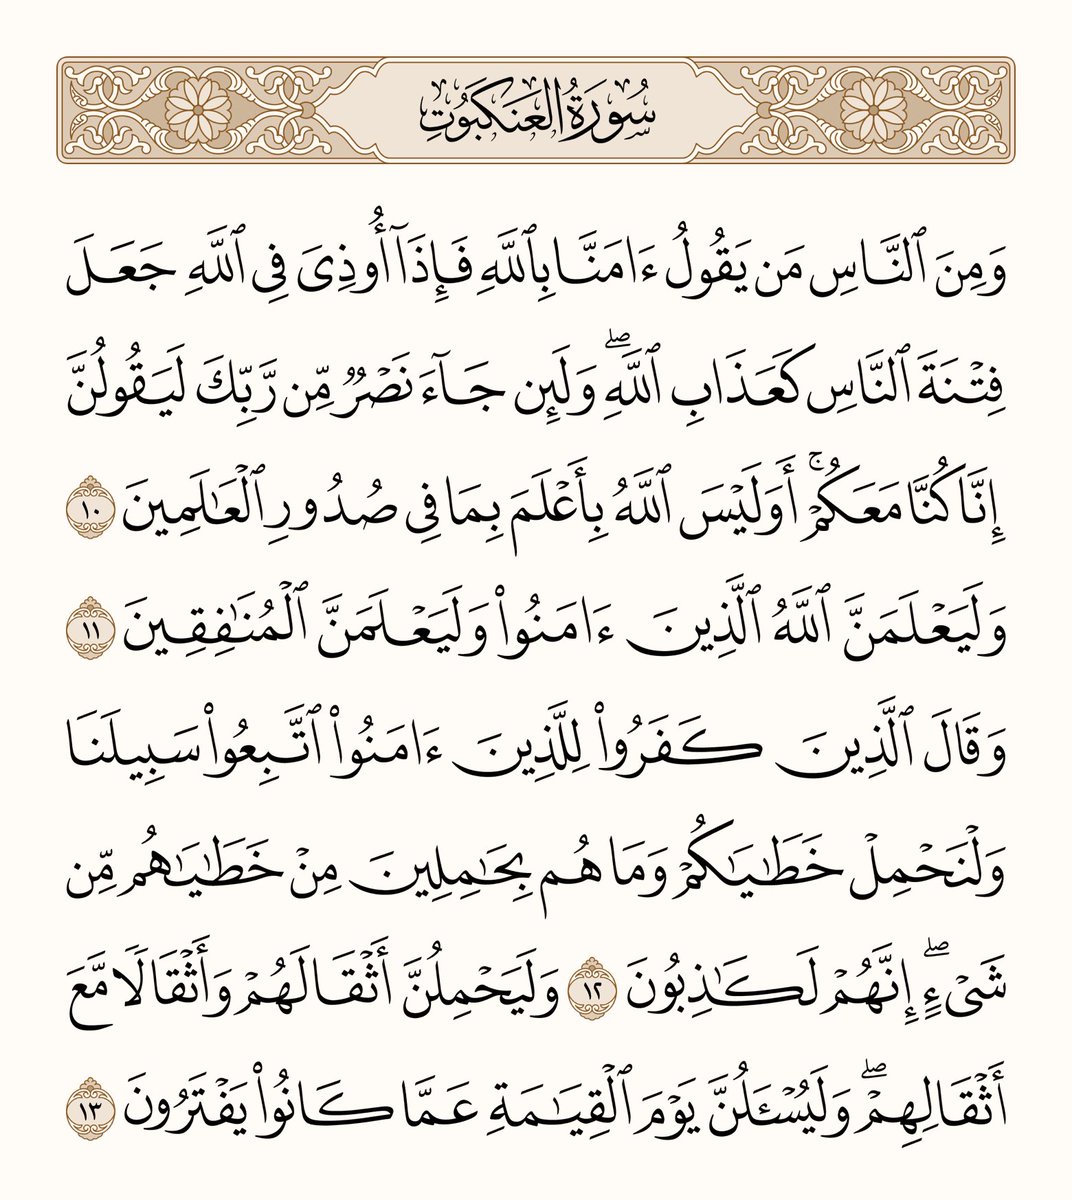 سُورَةُ العَنكَبُوتِ
وَمِنَ ٱلنَّاسِ مَن يَقُولُ ءَامَنَّا بِٱللَّهِ فَإِذَآ أُوذِىَ فِى ٱللَّهِ جَعَلَ
فِتْنَةَ ٱلنَّاسِ كَعَذَابِ ٱللَّهِۖ وَلَئِن جَآءَ نَصْرٌ مِّن رَّبِّكَ لَيَقُولُنَّ
إِنَّا كُنَّا مَعَكُمْۚ أَوَلَيْسَ ٱللَّهُ بِأَعْلَمَ بِمَا فِى صُدُورِ ٱلْعَٰلَمِينَ ١٠
وَلَيَعْلَمَنَّ ٱللَّهُ ٱلَّذِينَ ءَامَنُوا۟ وَلَيَعْلَمَنَّ ٱلْمُنَٰفِقِينَ ١١
وَقَالَ ٱلَّذِينَ كَفَرُوا۟ لِلَّذِينَ ءَامَنُوا۟ ٱتَّبِعُوا۟ سَبِيلَنَا
وَلْنَحْمِلْ خَطَٰيَٰكُمْ وَمَا هُم بِحَٰمِلِينَ مِنْ خَطَٰيَٰهُم مِّن
شَىْءٍۖ إِنَّهُمْ لَكَٰذِبُونَ ١٢ وَلَيَحْمِلُنَّ أَثْقَالَهُمْ وَأَثْقَالًا مَّعَ
أَثْقَالِهِمْۖ وَلَيُسْـَٔلُنَّ يَوْمَ ٱلْقِيَٰمَةِ عَمَّا كَانُوا۟ يَفْتَرُونَ ١٣